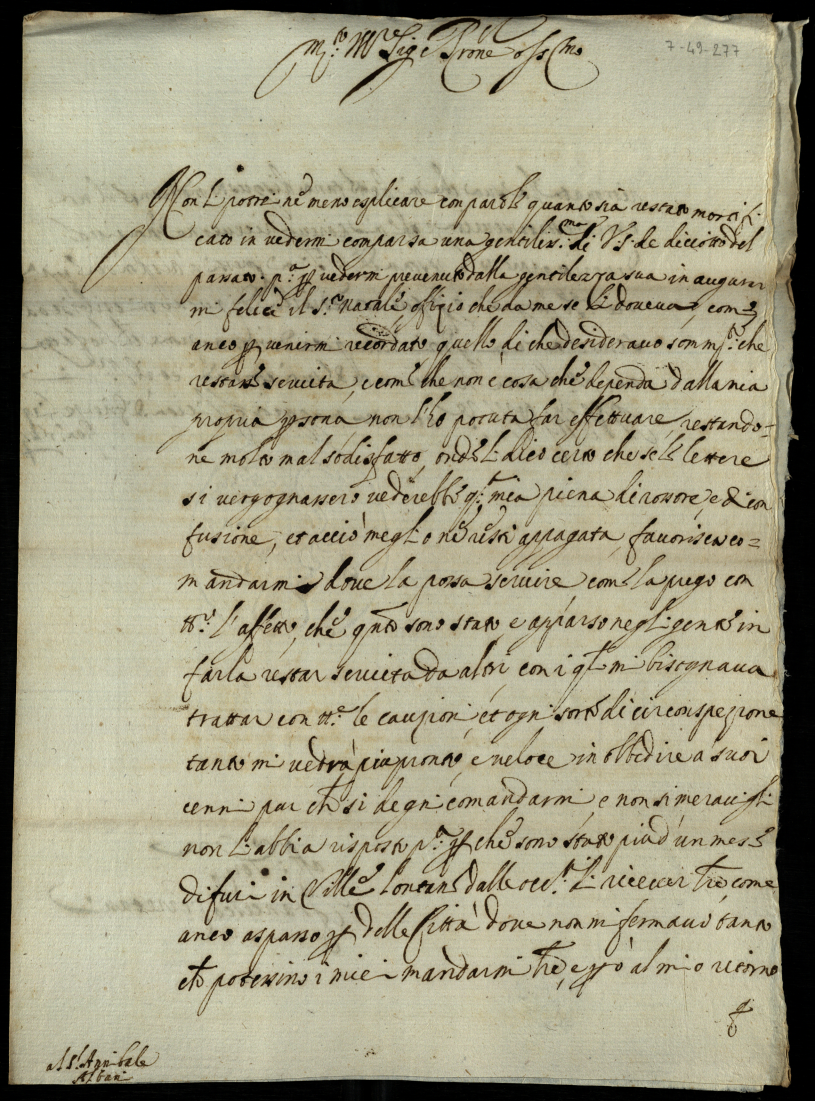 7-49-277
m.to Ill.re Sig.e Prone oss.mo
Non li potrei ne meno esplicare con parole quanto sia restato mortifi-
cato in vedermi comparsa una gentiliss.ma di V.S. de diciotto del
passato p.a p vedermi prevenuto dalla gentilezza sua in augurar
mi felice il s.to natale, ofizio che da me se li doveva, com
anco p venirmi ricordato quello di che desideravo som.te che
restasse servita, e come che non è cosa che dependa dalla mia
propria psona non l'ho potuta far effettuare, restando=
ne molto mal sodisfatto, onde li dico certo che se le lettere
si vergognassero vederebbe q.ta mia piena di rossore, e di con
fusione, et acciò meglio ne resti appagata, favorisca co=
mandarmi dove la possa servire come la prego con
tt.o l'affetto, che q.nto sono stato e apparso negligente in
farla restar servita da altri con i q.li mi bisognava
trattar con tt.e le cauzioni, et ogni sorte di circonspezione
tanto mi vedrà più pronto, e veloce in obbedire a suoi
cenni pur che si degni comandarmi, e non si meravigli
non li abbia risposto p.a p che sono stato più d'un mese
di furi in Ville lontane dalle occ.ni di ricever lre, come
anco a spasso p delle Città dove non mi fermavo tanto
che potessino i miei mandarmi lre, e pò al mio ritorno
al S.r Annibale
Albani